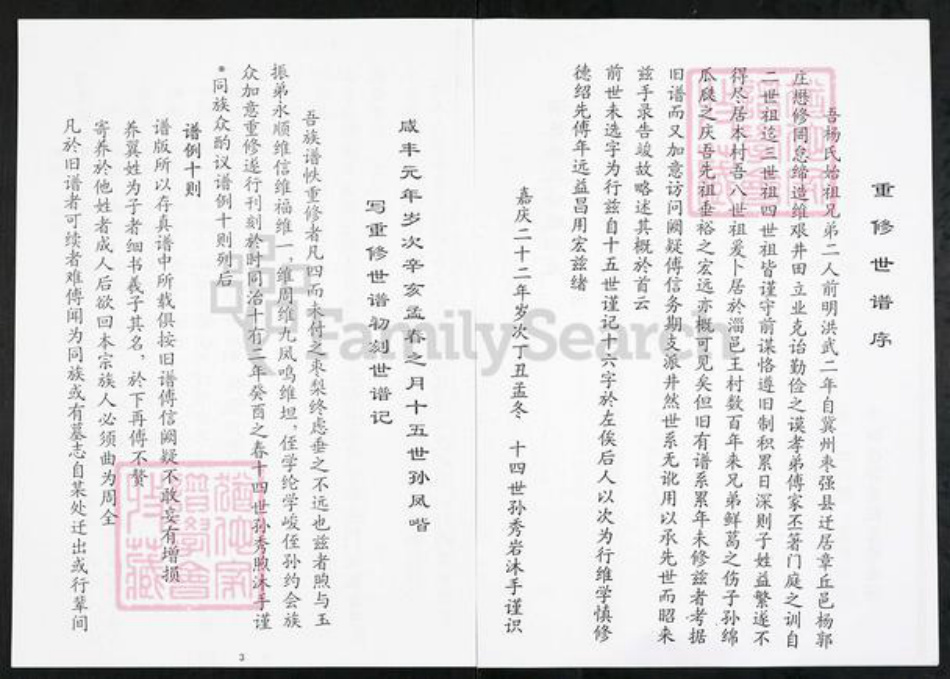 重修世谱序
吾杨氏始祖兄弟二人前明洪武二年自冀州枣强县迁居章丘邑杨郭
庄懋修罔怠缔造维艰井田立业克诒勤俭之谟孝弟傅家丕著门庭之训自
二世祖迄三世祖四世祖皆谨守前谋恪遵旧制积累日深则子姓益繁遂不
得尽居本村吾八世祖爰卜居於淄邑王村数百年来兄弟鲜葛之伤子孙绵
瓜瓞之庆吾先祖垂裕之宏远亦概可见矣但旧有谱系累年未修兹者考据
旧谱而又加意访问阙疑傅信务期支派井然世系无讹用以承先世而昭来
兹手录告竣故略述其概於首云
前世未选字为行兹自十五世谨记十六字於左俟后人以次为行维学慎修
德绍先傅年远益昌用宏兹绪
嘉庆二十二年岁次丁丑孟冬 十四世孙秀岩沐手谨识
咸丰元年岁次辛亥孟春之月十五世孙凤喈
写重修世谱初刻世谱记
吾族谱帙重修者凡四而未付之枣梨终虑垂之不远也兹者煦与玉
振弟永顺维信维福维一,维周维九凤鸣维坦,侄学纶学峻侄孙约会族
众加意重修遂行刊刻於时同治十有二年癸酉之春十四世孙秀煦沐手谨
*同族众酌议谱例十则列后
谱例十则
谱版所以存真谱中所载俱按旧谱傅信阙疑不敢妄有增损
养翼姓为子者细书义子其名,於下再傅不赘
寄养於他姓者成人后欲回本宗族人必须曲为周全
凡於旧谱者可续者难傅闻为同族或有墓志自某处迁出或行辈间
3
FamilySearch